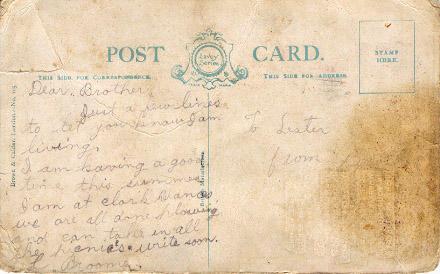 POST CARD.
Davey Series
THIS SIDE FOR CORRESPONDENCE.
THIS SIDE FOR ADDRESS.
STAMP
HERE.
Dear Brother
Just a few lines
to let you know I am
living.
I am having a good
time this summer
I am at Clark
we are all done plowing
and can take in all
the write soon.
To Lester
from